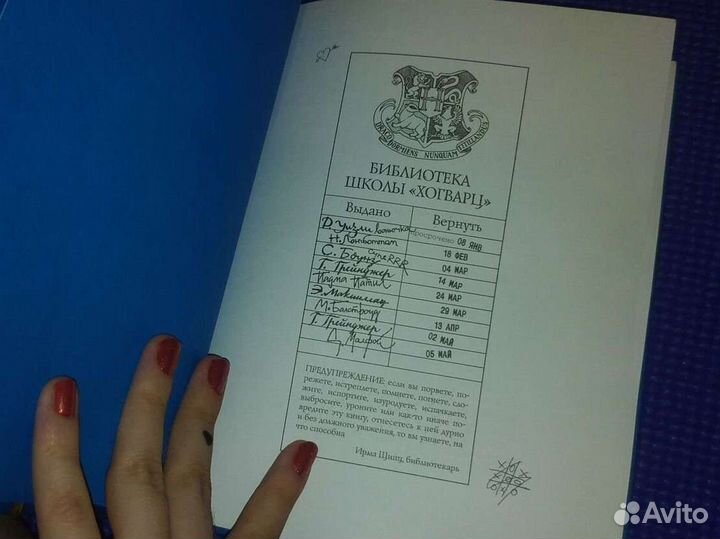 DRACO DORMIENS NUNQUAM TITILLANDUS
БИБЛИОТЕКА
ШКОЛЫ «ХОГВАРЦ»
Выдано Вернуть
Д. Уизли просрочено 08 ЯНВ
Н. Лонгботтом 18 ФЕВ
С. Боунс 04 МАР
Г. Грейнджер 14 МАР
Падма Патил 24 МАР
Э. Макмиллан 29 МАР
М. Балстроуд 13 АПР
Г. Грейнджер 02 МАЙ
Д. Малфой 05 МАЙ
ПРЕДУПРЕЖДЕНИЕ: если вы порвете, по-
режете, истреплете, помнете, погнете, сло-
жите, испортите, изуродуете, испачкаете,
выбросите, уроните или как-то иначе по-
вредите эту книгу, отнесетесь к ней дурно
и без должного уважения, то вы узнаете, на
что я способна
Ирма Щипц, библиотекарь
Avito